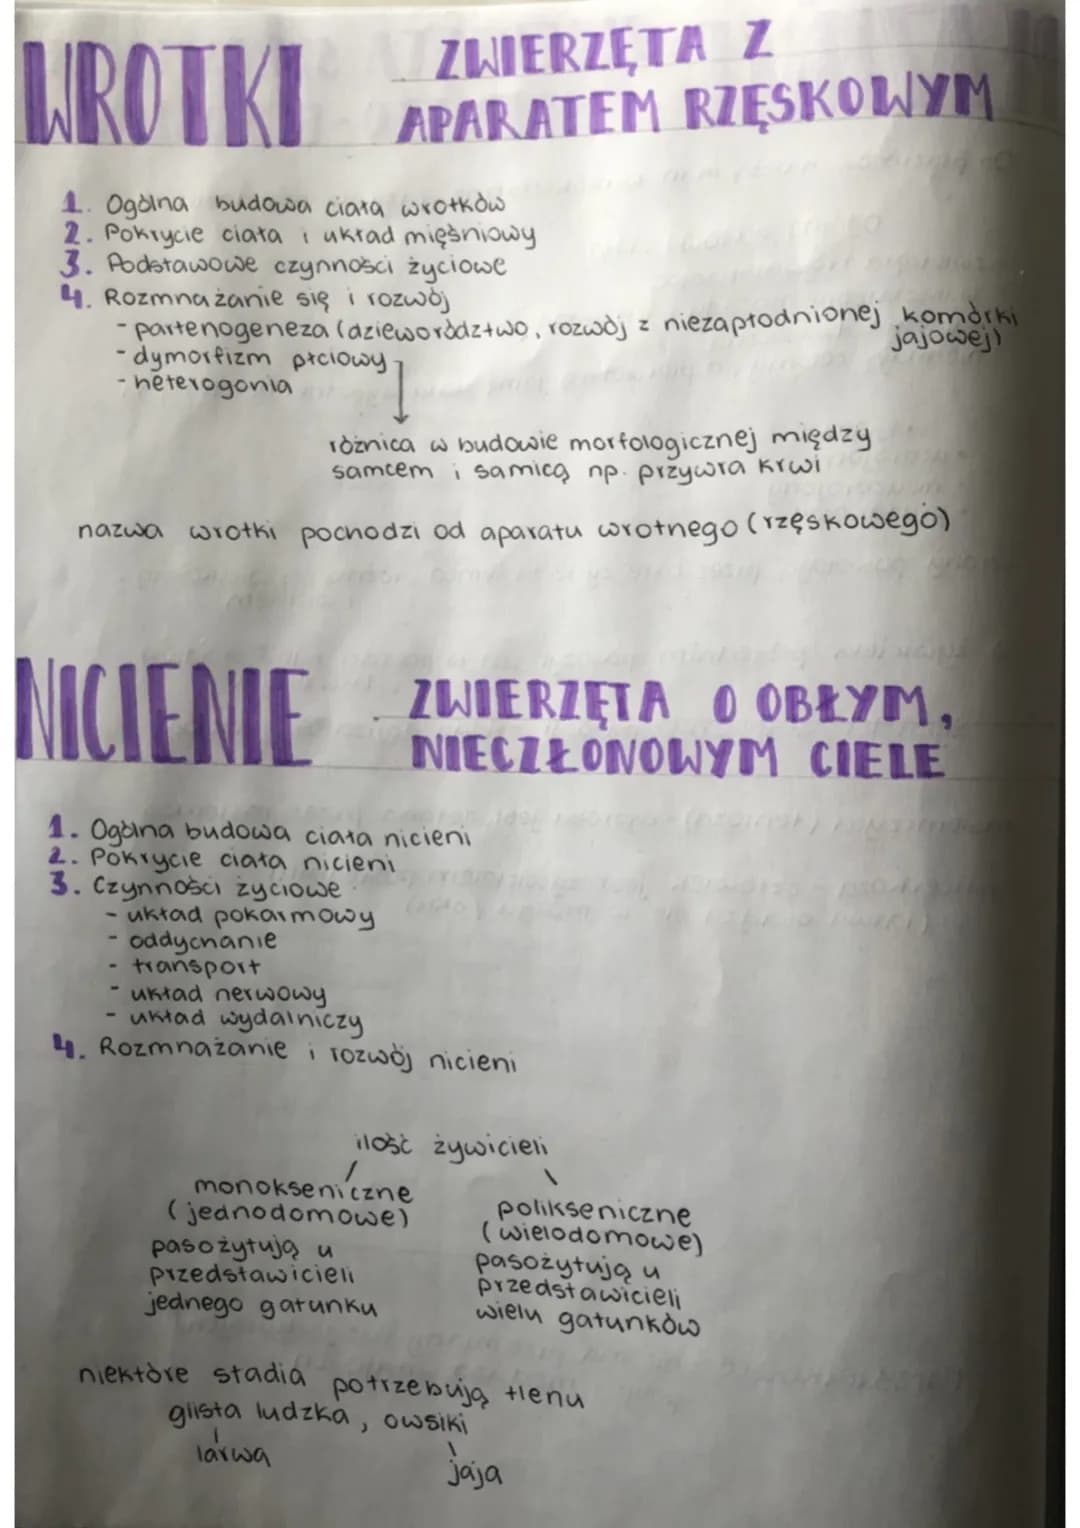 WROTKI ZWIERZĘTA Z
APARATEM RZĘSKOWYM
1. Ogólna budowa ciała wrotków
2. Pokrycie ciała i układ mięśniowy
3. Podstawowe czynności życiowe
4. Rozmnażanie się i rozwój
- partenogeneza (dzieworództwo, rozwój z niezapłodnionej komórki
jajowej)
- dymorfizm płciowy
- heterogonia
różnica w budowie morfologicznej między
samcem i samicą np. przywra krwi
nazwa wrotki pochodzi od aparatu wrotnego (rzęskowego)
NICIENIE ZWIERZĘTA O OBŁYM,
NIECZŁONOWYM CIELE
1. Ogólna budowa ciała nicieni
2. Pokrycie ciała nicieni
3. Czynności życiowe
- układ pokarmowy
- oddychanie
- transport
- układ nerwowy
- układ wydalniczy
4. Rozmnażanie i rozwój nicieni
ilość żywicieli
monokseniczne
(jednodomowe)
pasożytują u
przedstawicieli
jednego gatunku
polikseniczne
(wielodomowe)
pasożytują u
przedstawicieli
wielu gatunków
niektóre stadia potrzebują tlenu
glista ludzka, owsiki
larwa jaja